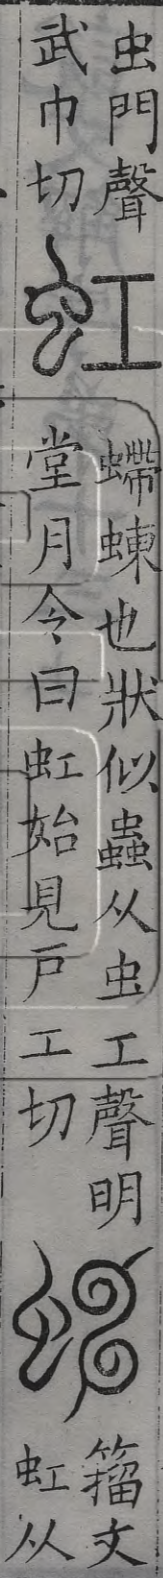 虫門聲
武巾切
虹
螮蝀也狀似蟲从虫工聲明
堂月令曰虹始見戸工切
𧍺
籒文
虹从